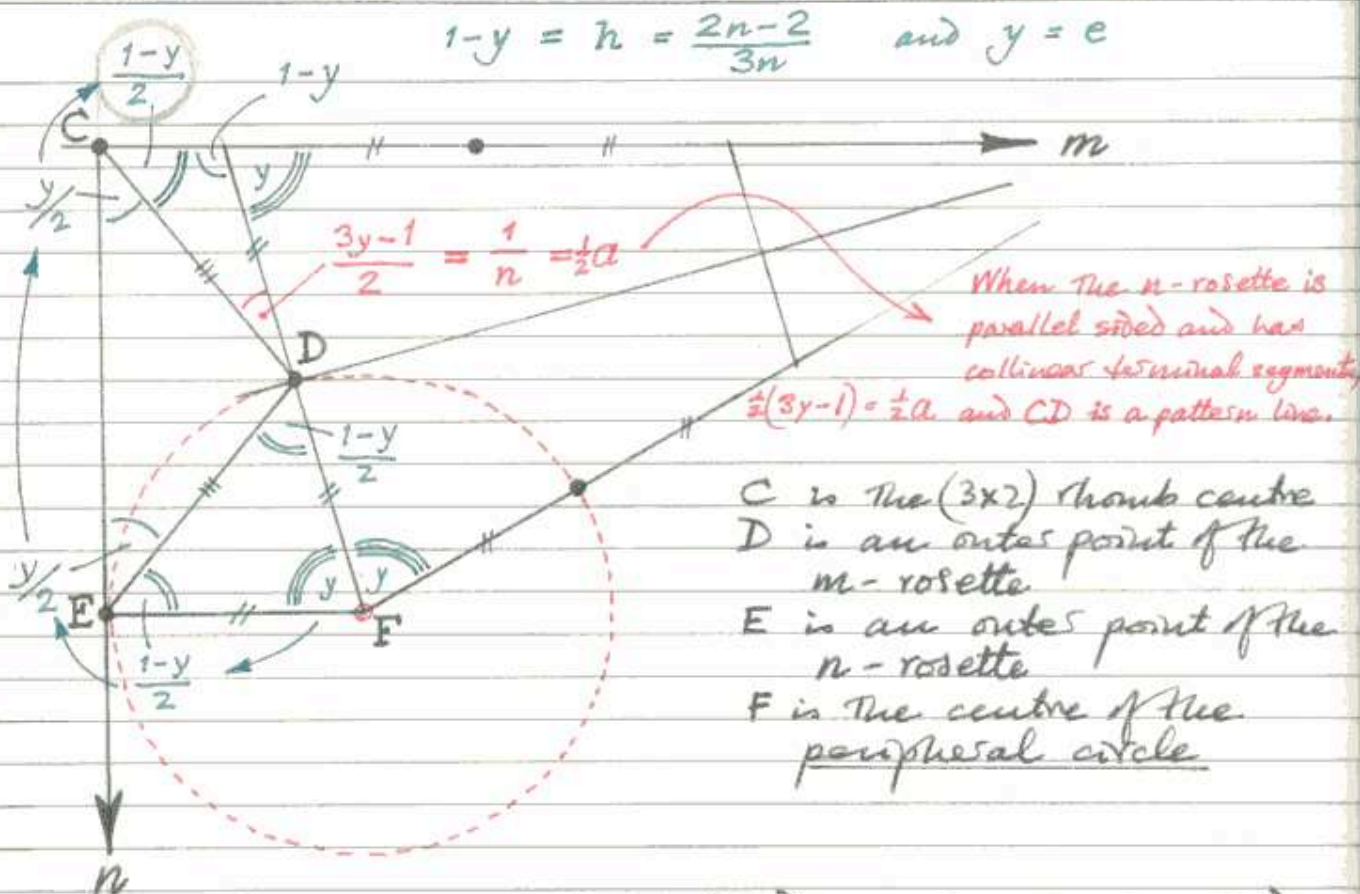 1-y = h = (2n-2)/3n and y = e
(1-y)/2
1-y
C
m
y/2
y
(3y-1)/2 = 1/n = ½a
When the n-rosette is
parallel sided and has
collinear terminal segments,
½(3y-1) = ½a and CD is a pattern line.
D
(1-y)/2
C is the (3x2) rhomb centre
D is an outer point of the
m-rosette
E is an outer point of the
n-rosette
F is the centre of the
peripheral circle
y/2
y y
E
F
(1-y)/2
n